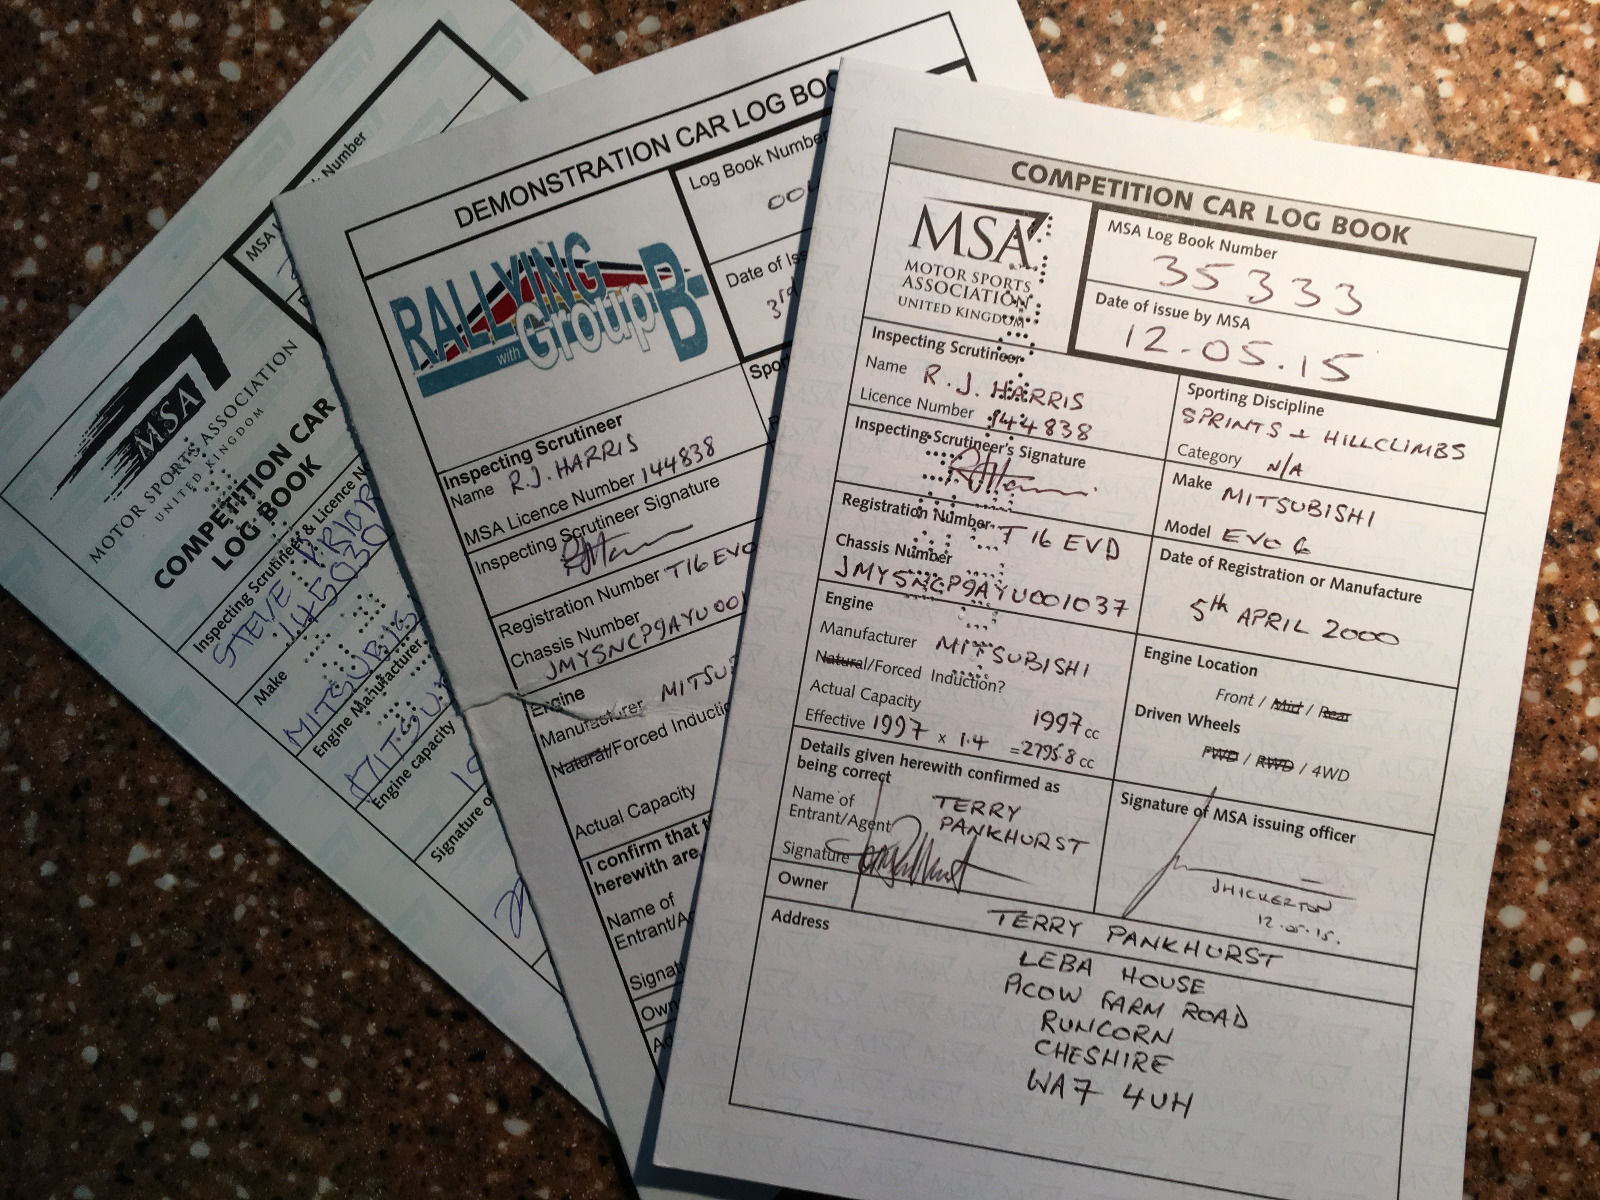 MSA
MOTOR SPORTS ASSOCIATION
UNITED KINGDOM
COMPETITION CAR
LOG BOOK
Number
Inspecting Scrutineer & Licence No
STEVE PRIOR
145030
Make
MITSUBIS
Engine Manufacturer
MITSU
Engine capacity
Signature o
DEMONSTRATION CAR LOG BOO
RALLYING
with Group B
Log Book Number
00
Date of Iss
3rd
Spo
Inspecting Scrutineer
Name R.J. HARRIS
MSA Licence Number 144838
Inspecting Scrutineer Signature
Registration Number T16 EVO
Chassis Number
JMYSNCP9AYU001
Engine
Manufacturer MITSU
Natural/Forced Inductio
Actual Capacity
I confirm that t
herewith are
Name of
Entrant/Ag
Signat
Own
Ad
COMPETITION CAR LOG BOOK
MSA
MOTOR SPORTS
ASSOCIATION
UNITED KINGDOM
MSA Log Book Number
35333
Date of issue by MSA
12.05.15
Inspecting Scrutineer
Name R.J. HARRIS
Licence Number 144838
Sporting Discipline
SPRINTS + HILLCLIMBS
Category N/A
Inspecting Scrutineer's Signature
Make MITSUBISHI
Model EVO 6
Registration Number T16 EVD
Chassis Number
JMYSNCP9AYU001037
Date of Registration or Manufacture
5th APRIL 2000
Engine
Manufacturer MITSUBISHI
Natural/Forced Induction?
Actual Capacity 1997 cc
Effective 1997 x 1.4 =2795.8 cc
Engine Location
Front / Mid / Rear
Driven Wheels
FWD / RWD / 4WD
Details given herewith confirmed as
being correct
Name of
Entrant/Agent TERRY
PANKHURST
Signature
Signature of MSA issuing officer
JHICKERTON
12.05.15.
Owner TERRY PANKHURST
Address
LEBA HOUSE
PICOW FARM ROAD
RUNCORN
CHESHIRE
WA7 4UH